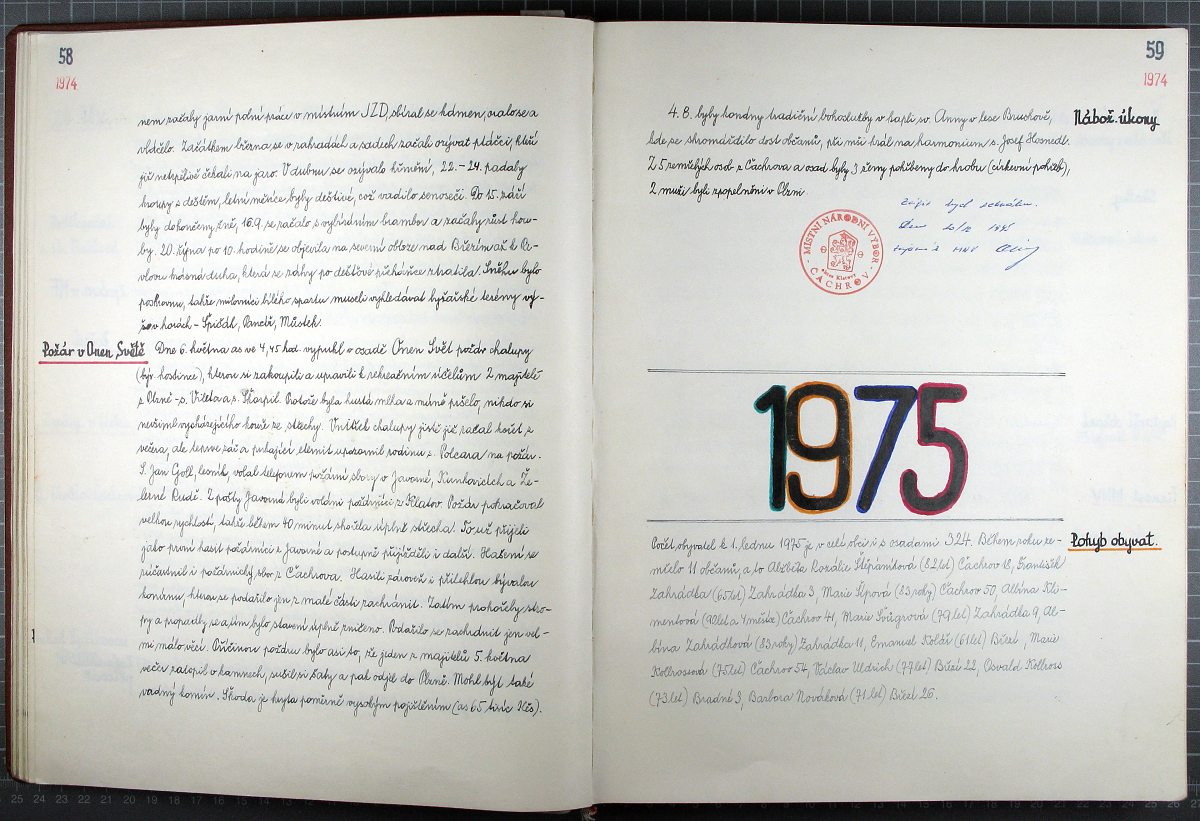 58
1974
nem začaly jarní polní práce v místním JZD, sbíral se kámen, oralo se a
vláčelo. Začátkem března se v zahradách a sadech začali ozývat ptáčci, kteří
již netrpělivě čekali na jaro. V dubnu se ozývalo hřmění, 22.-24. padaly
kroupy s deštěm, letní měsíce byly deštivé, což vadilo senoseči. Do 15. září
byly dokončeny žně, 16.9. se začalo s vybíráním brambor a začaly růst hou-
by. 20. října po 10. hodině se objevila na severní obloze nad Březím až k
krásná duha, která se záhy po dešťové přeháňce ztratila. Sněhu bylo
poskrovnu, takže milovníci bílého sportu museli vyhledávat lyžařské terény vý-
še v horách - Špičák, Pancíř, Můstek.
Požár v Onen Světě
Dne 6. května as ve 4,45 hod. vypukl v osadě Onen Svět požár chalupy
(býv. hostince), kterou si zakoupili a upravili k rekreačním účelům 2 majitelé
z Plzně - s. Viteta a s. Škarpil. Protože byla hustá mlha a mírně pršelo, nikdo si
nevšiml vycházejícího kouře ze střechy. Vnitřek chalupy jistě již začal hořet z
večera, ale teprve zář a pukající eternit upozornil rodinu s. Polcara na požár.
S. Jan Goll, lesník, volal telefonem požární sbory v Javorné, Hunkovicích a Že-
lezné Rudě. Z pošty Javorná byli voláni požárníci z Klatov. Požár pokračoval
velkou rychlostí, takže během 40 minut shořela úplně střecha. To už přijeli
jako první hasit požárníci z Javorné a postupně přijížděli i další. Hašení se
zúčastnil i požárnický sbor z Čachrova. Hasili zároveň i přilehlou bývalou
konírnu, kterou se podařilo jen z malé části zachránit. Zatím prohořely stro-
py a propadly se a tím bylo stavení úplně zničeno. Podařilo se zachránit jen vel-
mi málo věcí. Příčinou požáru bylo asi to, že jeden z majitelů 5. května
večer zatopil v kamnech, sušil si šaty a pak odjel do Plzně. Mohl být také
vadný komín. Škoda je kryta poměrně vysokým pojištěním (as 65 tisíc Kčs).
59
1974
4.8. byly konány tradiční bohoslužby v kapli sv. Anny v lese Bruchově,
Nábož. úkony
kde se shromáždilo dost občanů, při mši hrál na harmonium s. Josef Hosnedl.
Z 5 zemřelých osob z Čachrova a osad byly 3 ženy pohřbeny do hrobu (církevní pohřeb),
2 muži byli zpopelněni v Plzni.
Zápis byl schválen.
MÍSTNÍ NÁRODNÍ VÝBOR
okres Klatovy
ČACHROV
1975
Počet obyvatel k 1. lednu 1975 je v celé obci i s osadami 324. Během roku ze-
Pohyb obyvat.
mřelo 11 občanů, a to Alžběta Rozálie Štěpánková (82 let) Čachrov 18, František
Zahrádka (65 let) Zahrádka 3, Marie Šípová (83 roky) Čachrov 50, Albína Kli-
mentová (90 let a 4 měsíce) Čachrov 41, Marie Švígrová (79 let) Zahrádka 9, Al-
bína Zahrádková (83 roky) Zahrádka 11, Emanuel Kolář (61 let) Březí, Marie
Kollrossová (75 let) Čachrov 54, Václav Uldrich (77 let) Březí 22, Oswald Kollross
(73 let) Bradné 3, Barbora Nováková (71 let) Březí 26.